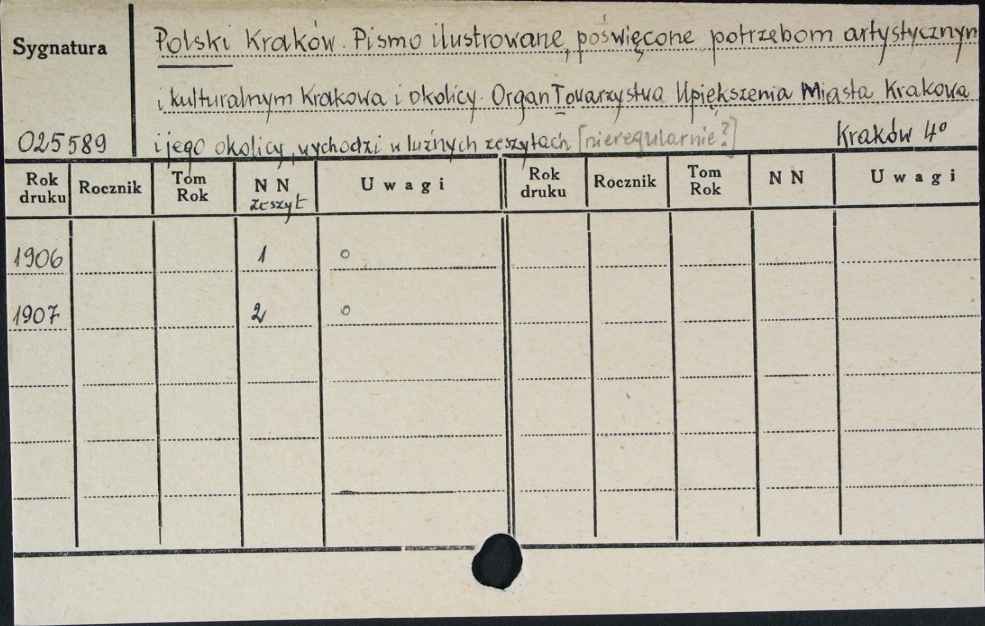 Sygnatura
Polski Kraków. Pismo ilustrowane, poświęcone potrzebom artystycznym
i kulturalnym Krakowa i okolicy. Organ Towarzystwa Upiększenia Miasta Krakowa
025589
i jego okolicy, wychodzi w luźnych zeszytach [nieregularnie?] Kraków 4°
Rok druku Rocznik Tom Rok N N zeszyt Uwagi Rok druku Rocznik Tom Rok N N Uwagi
1906 1 o
1907 2 o